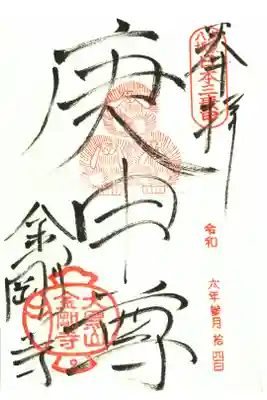 奉拝
日本三庚申
庚申尊
令和 六年 月 拾四日
金剛寺
大黒山
金剛寺